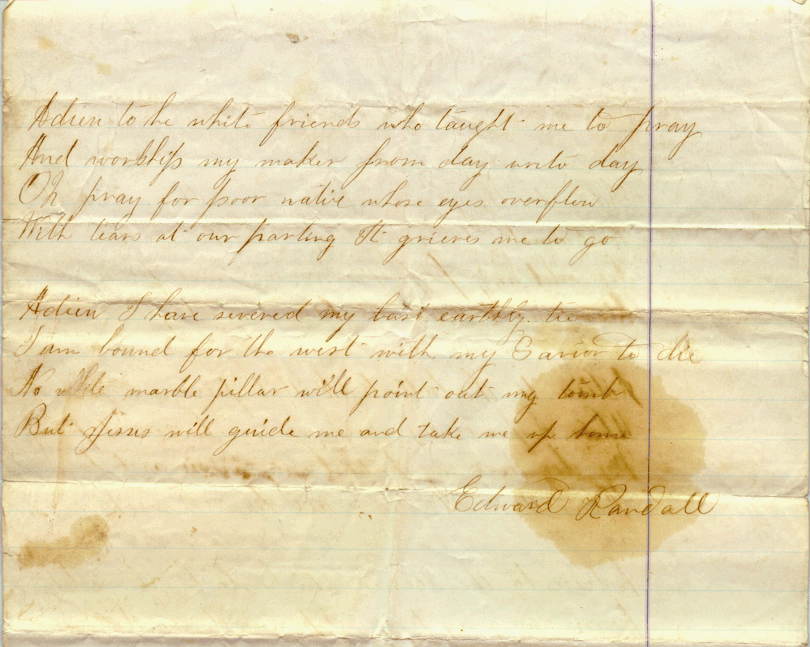 Adieu to the white friends who taught me to pray
And worship my maker from day unto day
Oh pray for poor native whose eyes overflow
With tears at our parting It grieves me to go
Adieu I have severed my last earthly tie
I am bound for the west with my Savior to die
No white marble pillar will point out my tomb
But Jesus will guide me and take me up home
Edward Randall